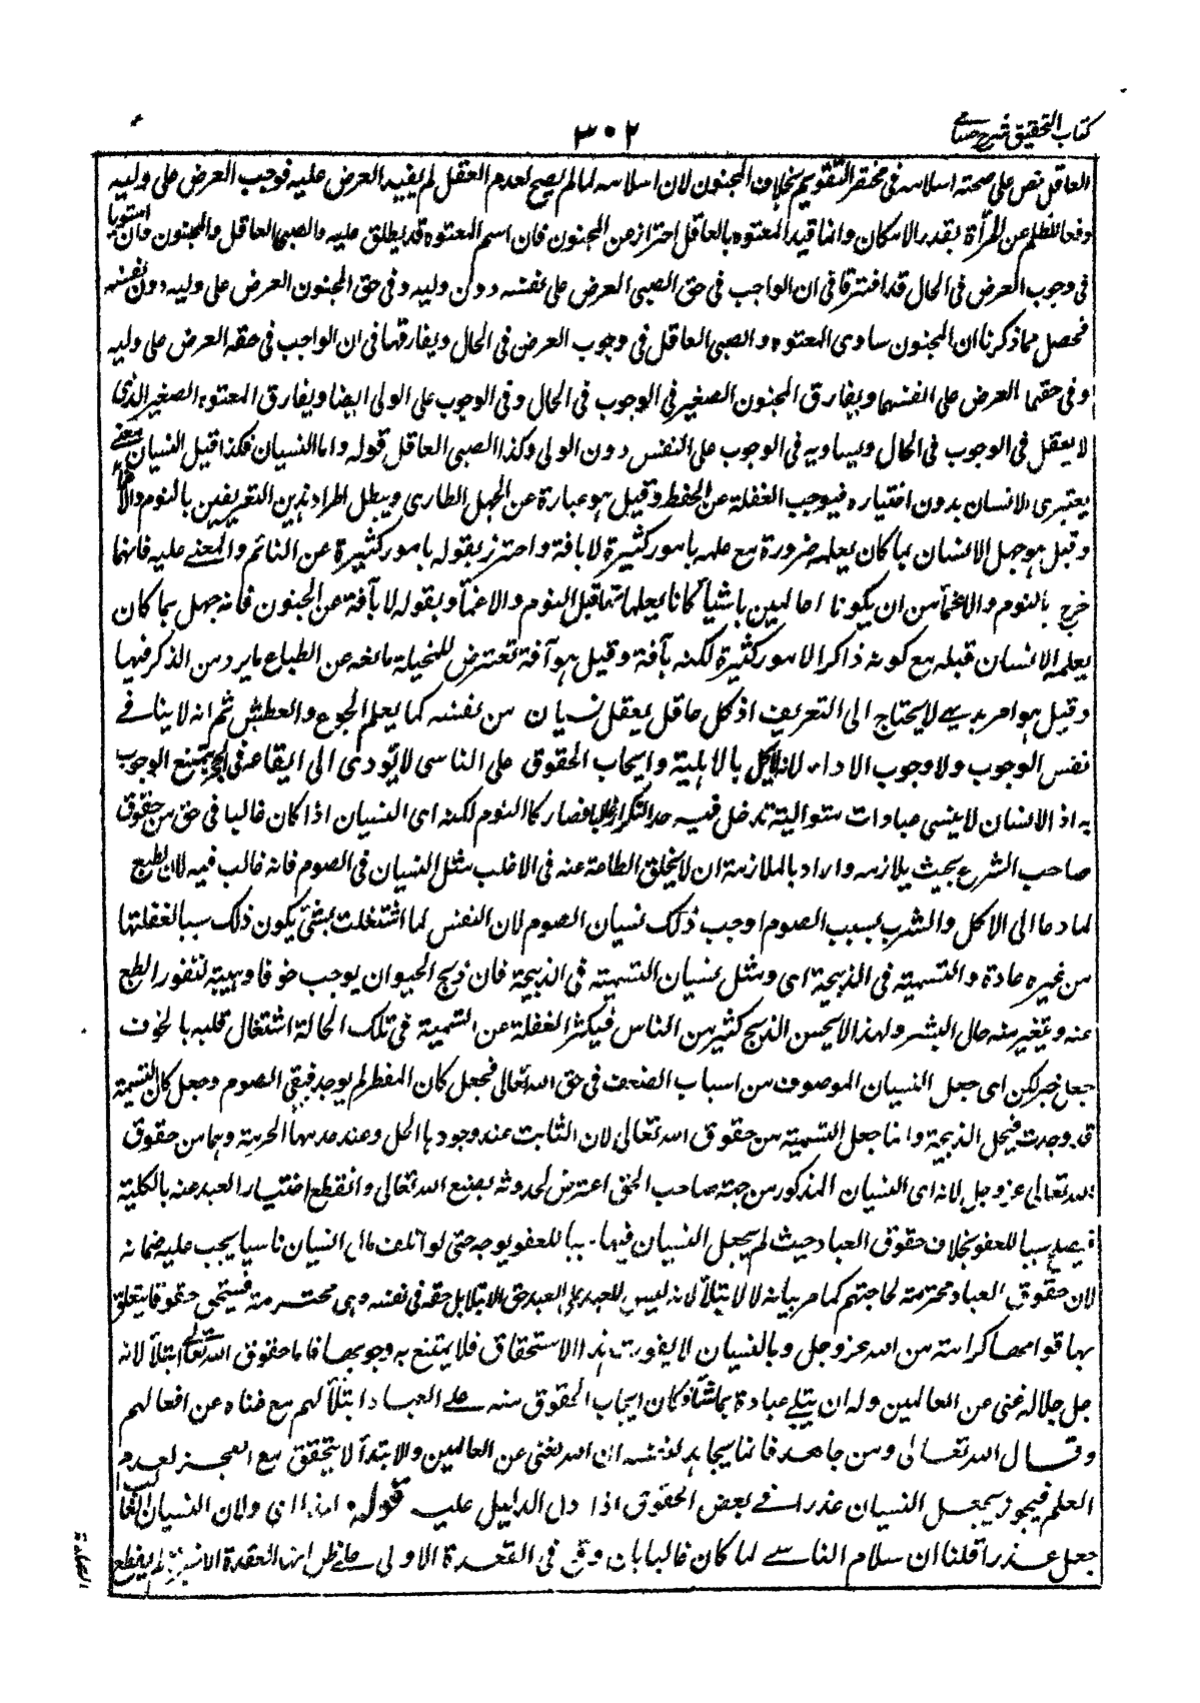 كتاب التحقيق شرح حسامي
٣٠٢
العاقل نص على صحته اسلامه فى مختصر التقويم بخلاف المجنون لان اسلامه لما لم يصح لعدم العقل لم يفيد العرض عليه فوجب العرض على وليه
دفعا للظلم عن المرأة بقدر الامكان وانما قيد المعتوه بالعاقل احتراز عن المجنون فان اسم المعتوه قد يطلق عليه والصبى العاقل والمجنون وان استويا
فى وجوب العرض فى الحال قد افترقا فى ان الواجب فى حق الصبى العرض على نفسه دون وليه وفى حق المجنون العرض على وليه دون نفسه
فحصل مما ذكرنا ان المجنون ساوى المعتوه والصبى العاقل فى وجوب العرض فى الحال ويفارقهما فى ان الواجب فى حقه العرض على وليه
وفى حقهما العرض على انفسهما ويفارق المجنون الصغير فى الوجوب فى الحال وفى الوجوب على الولى ايضا ويفارق المعتوه الصغير الذى
لا يعقل فى الوجوب فى الحال ويساويه فى الوجوب على النفس دون الولى وكذا الصبى العاقل قوله واما النسيان فكذا قيل النسيان معنى
يعترى الانسان بدون اختياره فيوجب الغفلة عن الحفظ وقيل هو عبارة عن الجهل الطارى ويبطل اطراد هذين التعريفين بالنوم والاغماء
وقيل هو جهل الانسان بما كان يعلمه ضرورة مع علمه بامور كثيرة لا بافة واحترز بقوله بامور كثيرة عن النائم والمغمى عليه فانهما
خرج بالنوم والاغماء من ان يكونا عالمين باشياء كانا يعلمانها قبل النوم والاغماء وبقوله لا بآفة عن الجنون فانه جهل بما كان
يعلمه الانسان قبله مع كونه ذاكرا لامور كثيرة لكنه بآفة وقيل هو آفة تعترض للمخيلة مانعة عن انطباع ما يرد من الذكر فيها
وقيل هو امر بديهى لا يحتاج الى التعريف اذ كل عاقل يعقل نسيان من نفسه كما يعلم الجوع والعطش ثم انه لا ينافى
نفس الوجوب ولا وجوب الاداء لانه لا يخل بالاهلية وايجاب الحقوق على الناسى لا يؤدى الى ايقاعه فى الحرج يمتنع الوجوب
به اذ الانسان لا ينسى عبادات متوالية تدخل فيه حد التكرار غالبا فصار كالنوم لكنه اى النسيان اذا كان غالبا فى حق من حقوق
صاحب الشرع بحيث يلازمه واراد بالملازمة ان لا يخلق الطاعة عنه فى الاغلب مثل النسيان فى الصوم فانه غالب فيه لان الطبع
لما دعا الى الاكل والشرب بسبب الصوم اوجب ذلك نسيان الصوم لان النفس لما اشتغلت بشئ يكون ذلك سببا لغفلتها
من غيره عادة والتسمية فى الذبيحة اى ومثل نسيان التسمية فى الذبيحة فان ذبح الحيوان يوجب خوفا وهيبة لنفور الطبع
عنه ويتغير منه حال البشر ولهذا لا يحسن الذبح كثير من الناس فيكثر الغفلة عن التسمية فى تلك الحالة اشتغال قلبه بالخوف
جعل خبر لكن اى جعل النسيان الموصوف من اسباب الضعف فى حق الله تعالى فجعل كان المفطر لم يوجد فيبقى الصوم وجعل كان التسمية
قد وجدت فيحل الذبيحة وانما جعل التسمية من حقوق الله تعالى لان الثابت عند وجودها الحل وعند عدمها الحرمة وهما من حقوق
الله تعالى عز وجل لانه اى النسيان المذكور من جهة صاحب الحق اعترض لحدوثه بصنع الله تعالى وانقطع اختيار العبد عنه بالكلية
فيصلح سببا للعفو بخلاف حقوق العباد حيث لم يجعل النسيان فيها سببا للعفو بوجه حتى لو اتلف مال انسان ناسيا يجب عليه ضمانه
لان حقوق العباد محترمة لحاجتهم كما مر بيانه لا للابتلاء لانه ليس للعبد على العبد حق الابتلا بل حقه فى نفسه وهى محترمة فيستحق حقوقا يتعلق
بها قوامها كرامة من الله عز وجل وبالنسيان لا يفوت هذا الاستحقاق فلا يمتنع به وجوبها فاما حقوق الله تعالى ابتلاء لانه
جل جلاله غنى عن العالمين وله ان يبتلى عباده بما شاء وكان ايجاب الحقوق منه على العباد ابتلاء لهم مع غناه عن افعالهم
وقال الله تعالى ومن جاهد فانما يجاهد لنفسه ان الله لغنى عن العالمين والابتداء لا يتحقق مع العجز لعدم
العلم فيجوز يجعل النسيان عذرا فى بعض الحقوق اذا دل الدليل عليه قوله لهذا اى ولان النسيان الغالب
جعل عذرا قلنا ان سلام الناسى لما كان غالبا بان وقع فى القعدة الاولى على ظن انها القعدة الاخيرة لم يقطع
الصلوة